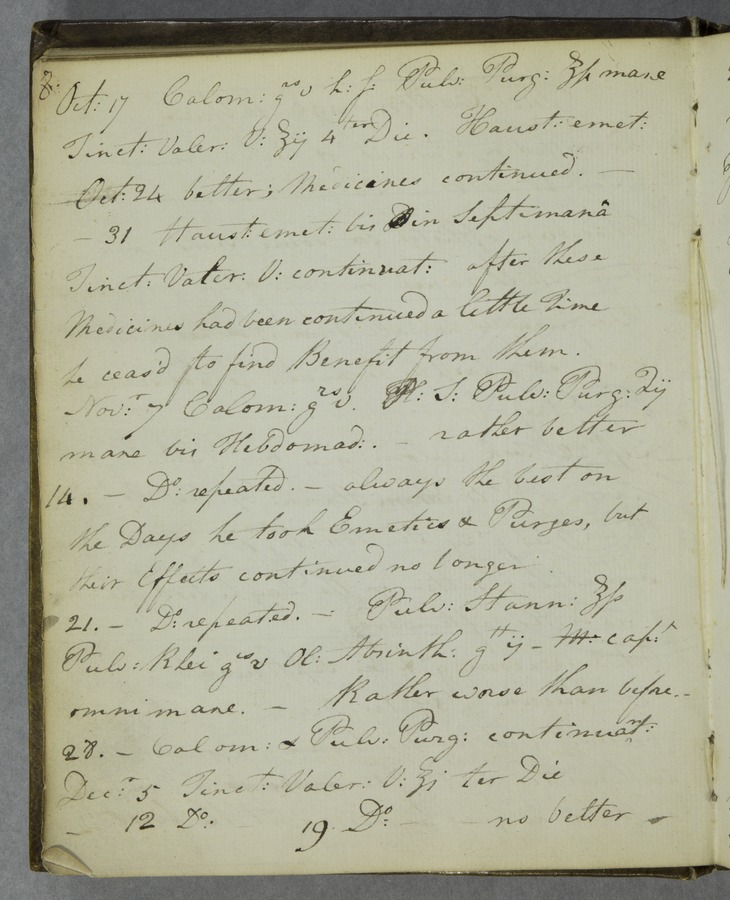 8.
Oct: 17 Calom: grs v h. s. Pulv: Purg: ʒß mane
Tinct: Valer: V: ʒij 4ter Die. Haust: emet:
Oct: 24 better; Medicines continued. —
— 31 Haust: emet: bis in Septimanâ
Tinct: Valer: V: continuat: after these
Medicines had been continued a little Time
he ceas'd to find Benefit from them.
Novr: 7 Calom: grs v. H: S: Pulv: Purg: ʒij
mane bis Hebdomad:. — rather better
14. — Do: repeated. — always the best on
the Days he took Emetics & Purges, but
their Effects continued no longer.
21. — Do: repeated. — Pulv: Stann: ʒß
Pulv: Rhei grs v Ol: Absinth: gtt ij — M: capt
omni mane. — Rather worse than before. -
28. — Calom: & Pulv: Purg: continuant:
Decr: 5 Tinct: Valer: V: ʒj ter Die
— 12 Do: 19 Do: — no better —